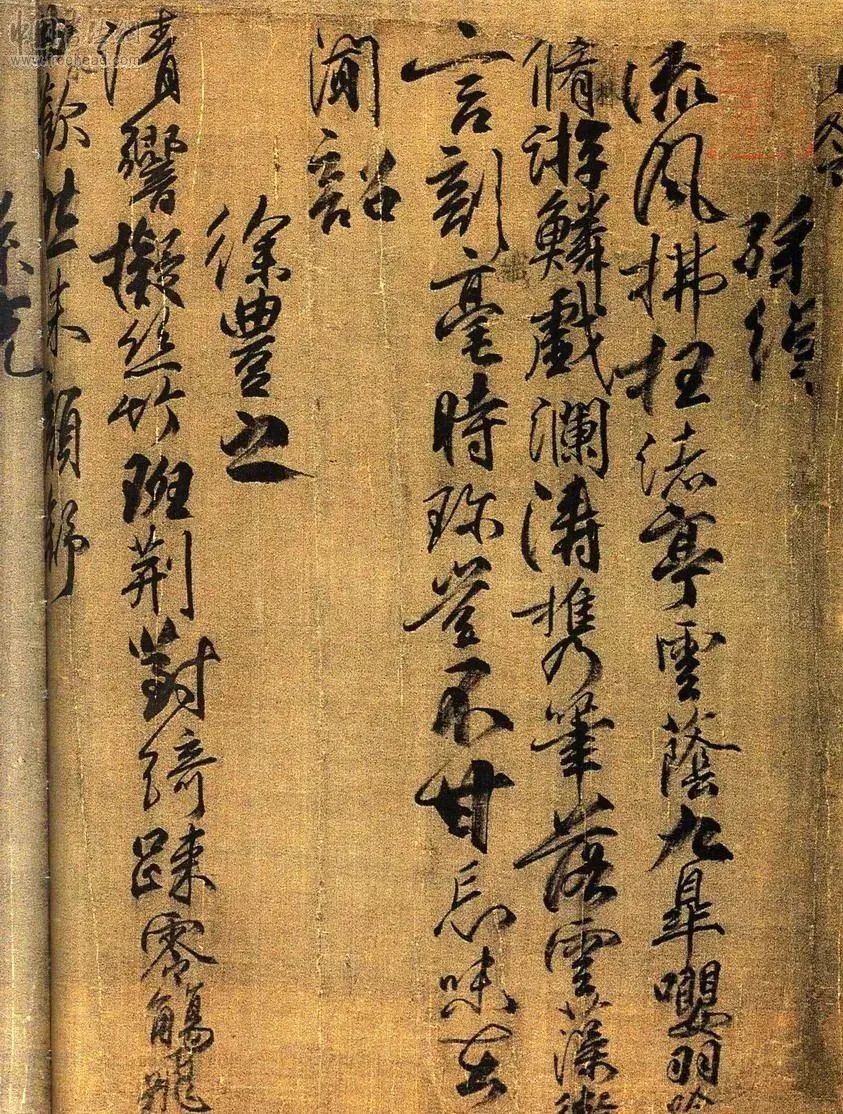 孫綽
流風拂枉渚亭雲蔭九臯嚶羽吟
脩竹游鱗戲瀾濤攜筆落雲藻微
言剖纖毫時珎豈不甘忘味在
聞韶
徐豐之
清響擬絲竹班荊對綺疎零觴飛
歡然朱顏舒